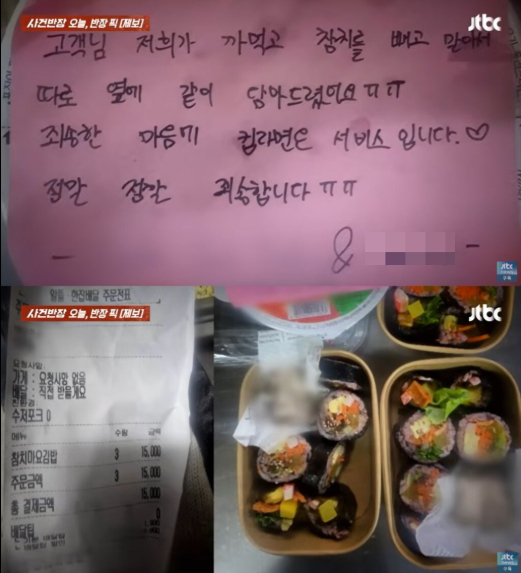 사건반장 오늘, 반장 픽 [제보]
jtbc
고객님 저희가 까먹고 참치를 빼고 말아서
따로 옆에 같이 담아드렸어요ㅠㅠ
죄송한 마음에 컵라면은 서비스입니다.♡
정말 정말 죄송합니다ㅠㅠ
&
jtbc
사건반장 오늘, 반장 픽 [제보]
jtbc
주문전표
요청사항
가게 : 요청사항 없음
배달 : 직접 받을게요
수저포크 0
메뉴 수량 금액
참치마요김밥 3 15,000
주문금액 3 15,000
총 결제금액 15,000
배달팁 0
jtbc